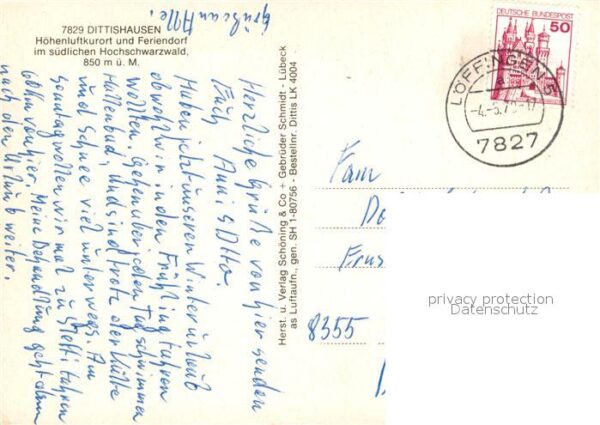 7829 DITTISHAUSEN
Höhenluftkurort und Feriendorf
im südlichen Hochschwarzwald,
850 m ü. M.
Herzliche Grüße von hier senden
Euch Anni & Otto.
Haben jetzt unseren Winterurlaub
obwohl wir in den Frühling fahren
wollten. Gehen aber jeden Tag schwimmen
Hallenbad, und sind trotz der Kälte
und Schnee viel unterwegs. Am
Sonntag wollen wir mal zu fahren
60km von hier. Meine Behandlung geht dann
nach den Urlaub weiter.
Grüße an Alle.
Herst. u. Verlag Schöning & Co + Gebrüder Schmidt - Lübeck
as Luftaufn., gen. SH 1-80756 - Bestellnr. Dittis LK 4004
DEUTSCHE BUNDESPOST
50
LÖFFINGEN
7827
Fam
8355
privacy protection
Datenschutz